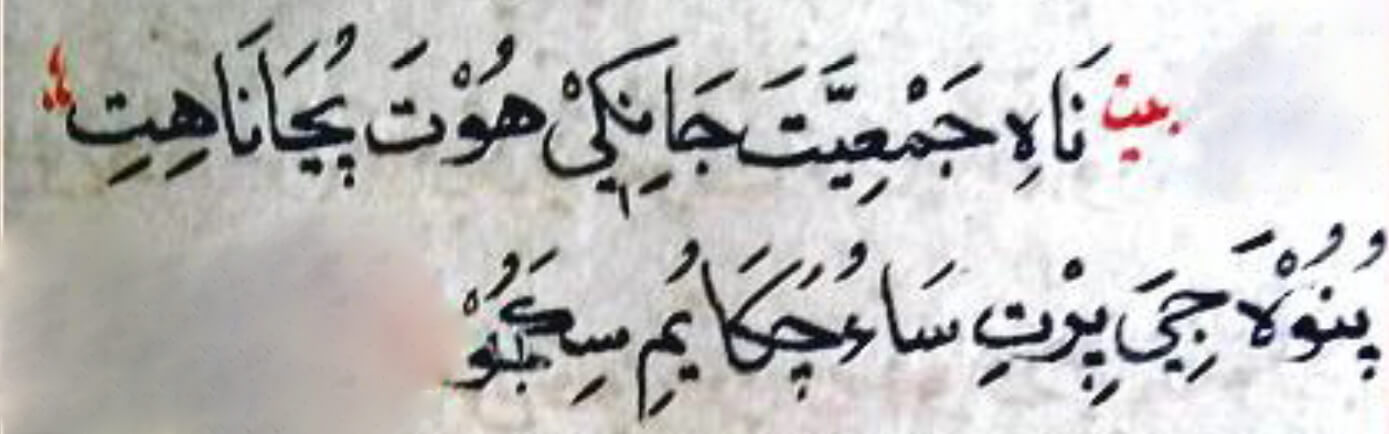 بيت نَاہِ جَمْعِيَّتَ جَانِکِيْ هُوْتَ پُڄَاڻَا هِتِ
پُنُوْہَ جِيَ پِرْتِ سَاءُ چُکَا يُمِ سِکَڻُوْ